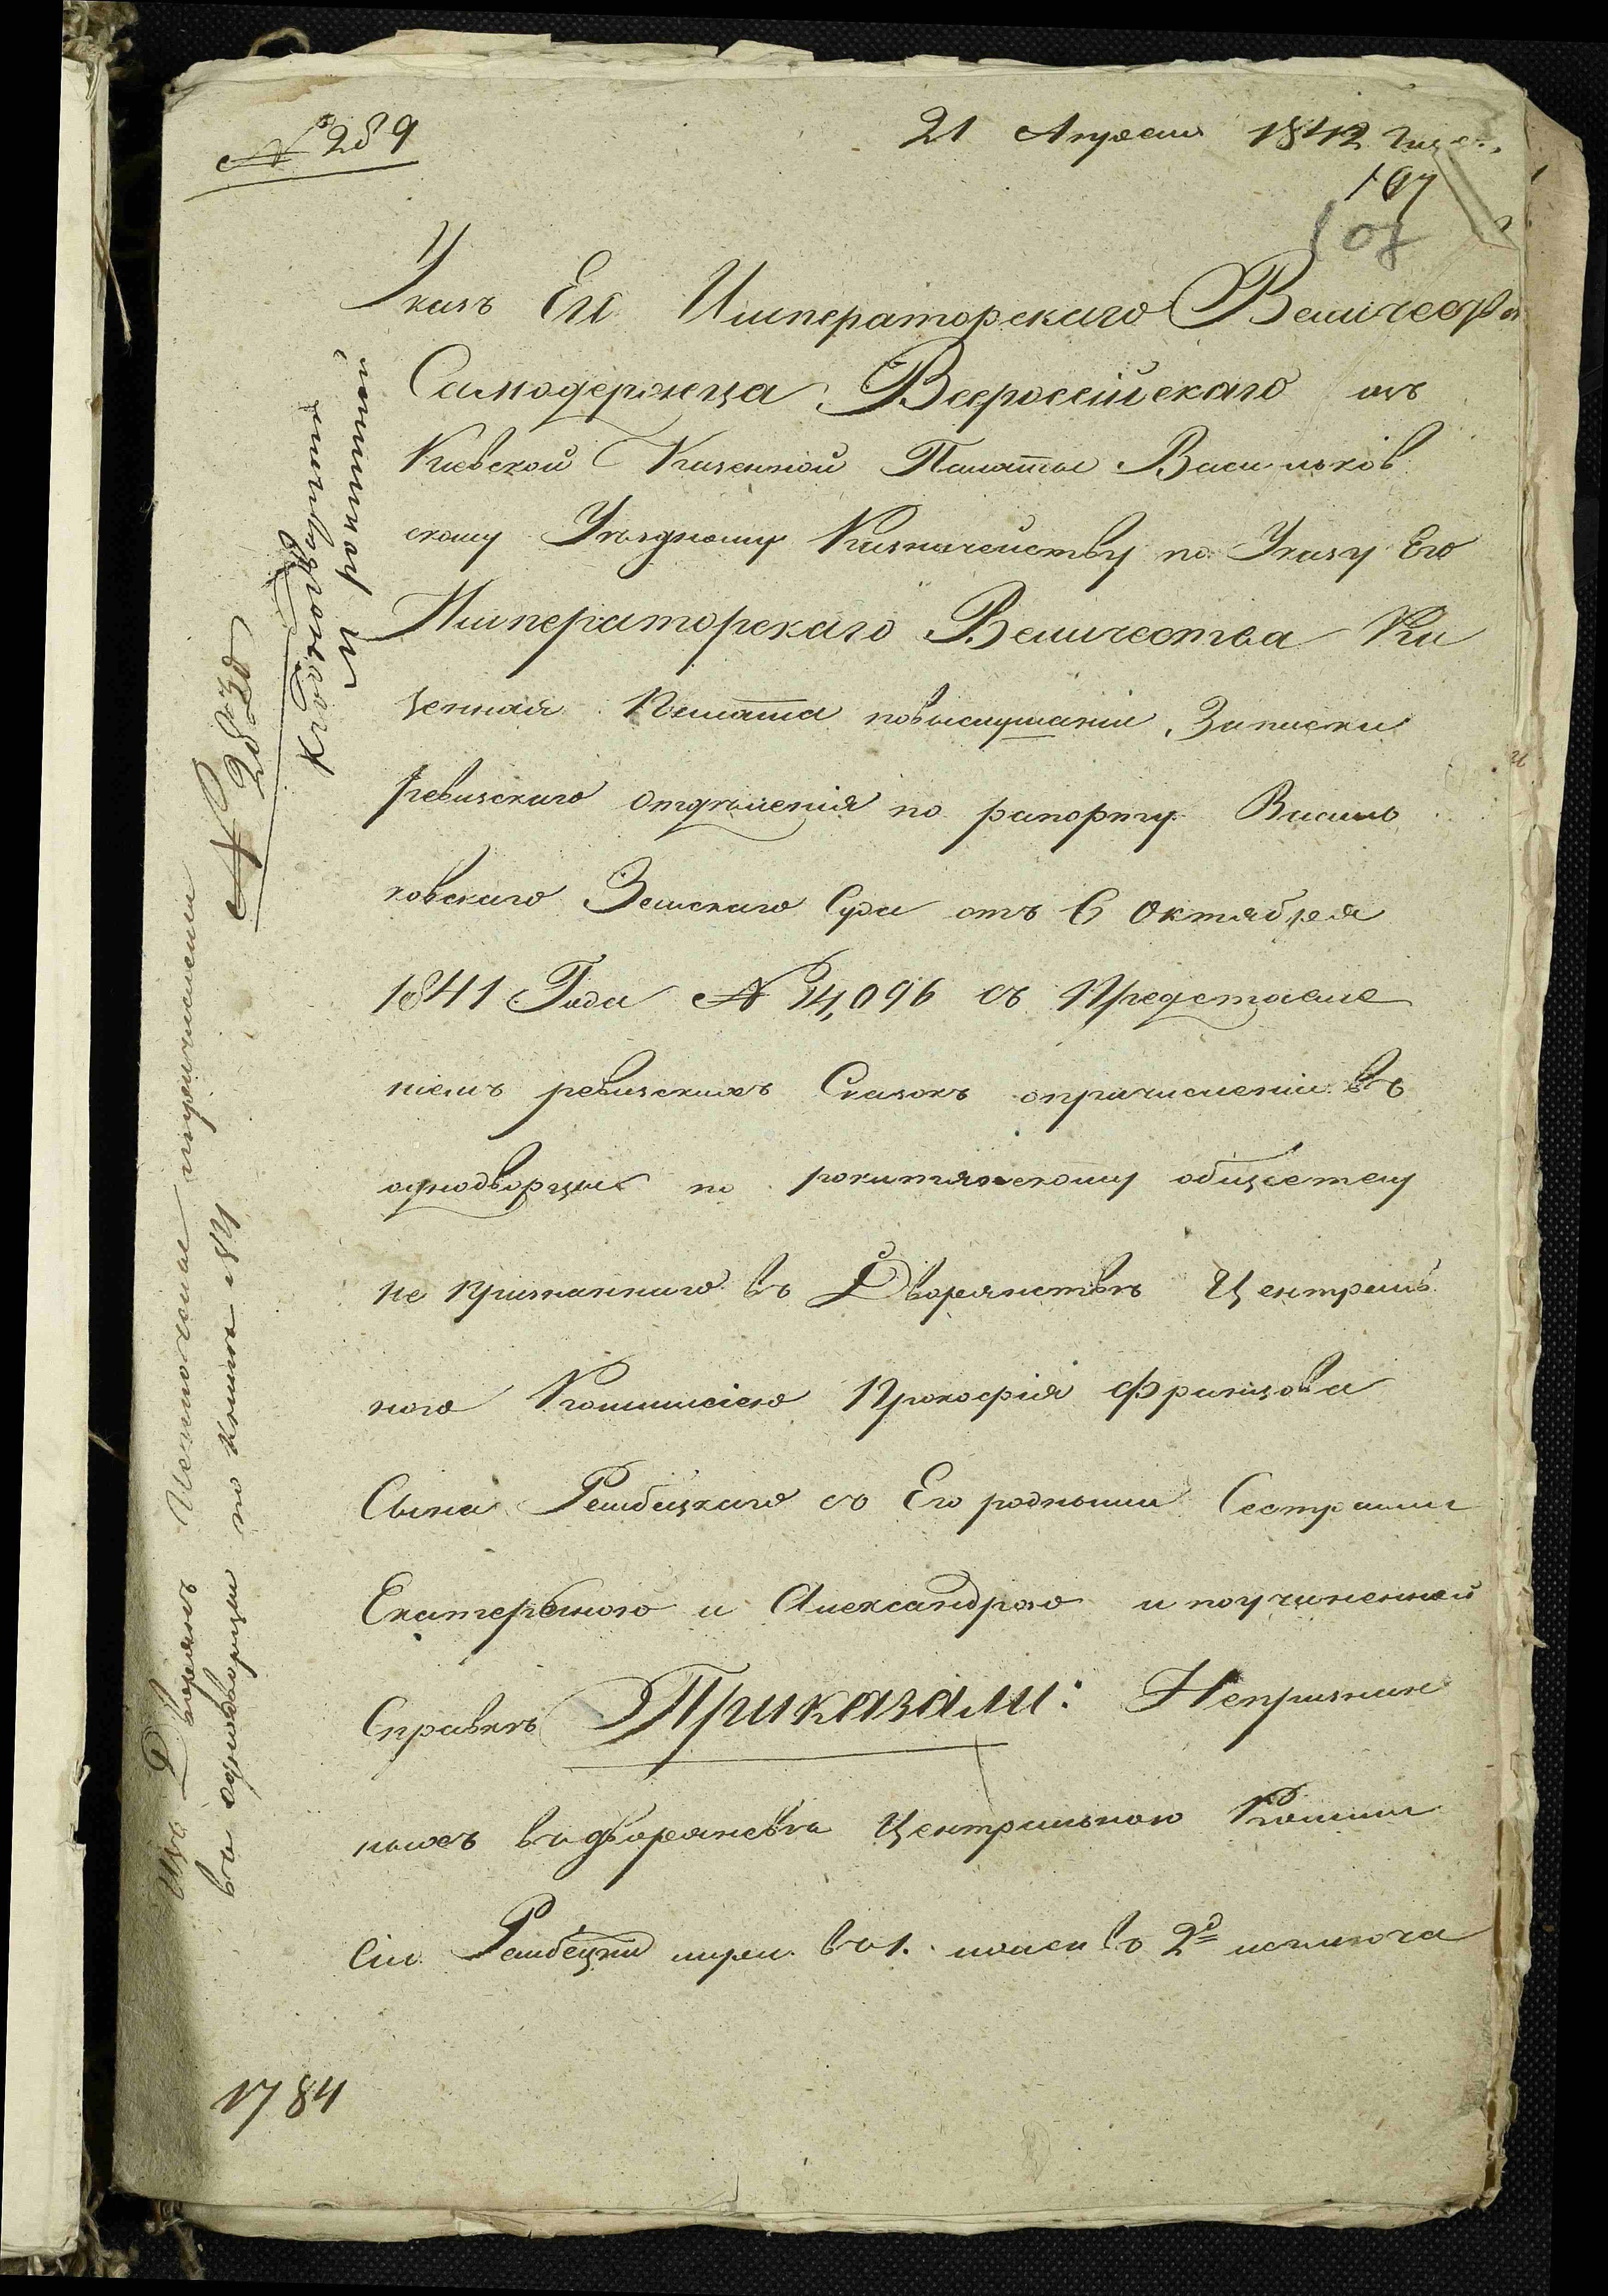 № 289
21 Апреля 1842 Года.
107
Указъ Его Императорскаго Величества
Самодержца Всероссійскаго изъ
Кіевской Казенной Палаты Васильков
скому Уѣздному Казначейству по Указу Его
Императорскаго Величества Ка
зенная Палата повыслушаніи Записки
ревизскаго отдѣленія по рапорту Василь
ковскаго Земскаго Суда отъ 6 Октября
1841 Года № 14,096 съ Представле
ніемъ ревизскихъ Сказокъ опричисленіи въ
однодворцы по рокитянскому обществу
не признаннаго въ Дворянствѣ Централь
ною Коммисіею Прокофія Францова
Сына Рембецкаго со Его родными Сестрами
Екатериною и Александрою и поучиненной
Справкѣ Приказали: Непризнан
ныхъ въ дворянсвѣ Центральною Комми
сіи Рембецкій въ 1. въ 2й исключа
Изъ Дворянъ Исключены перечислены
въ однодворцы по книгѣ 184
1784